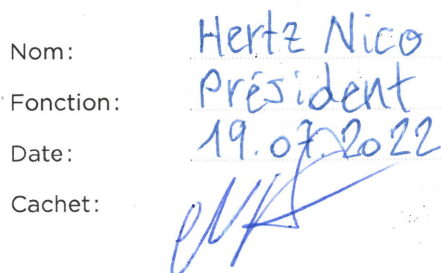 Nom: Hertz Nico
Fonction: Président
Date: 19.07.2022
Cachet: